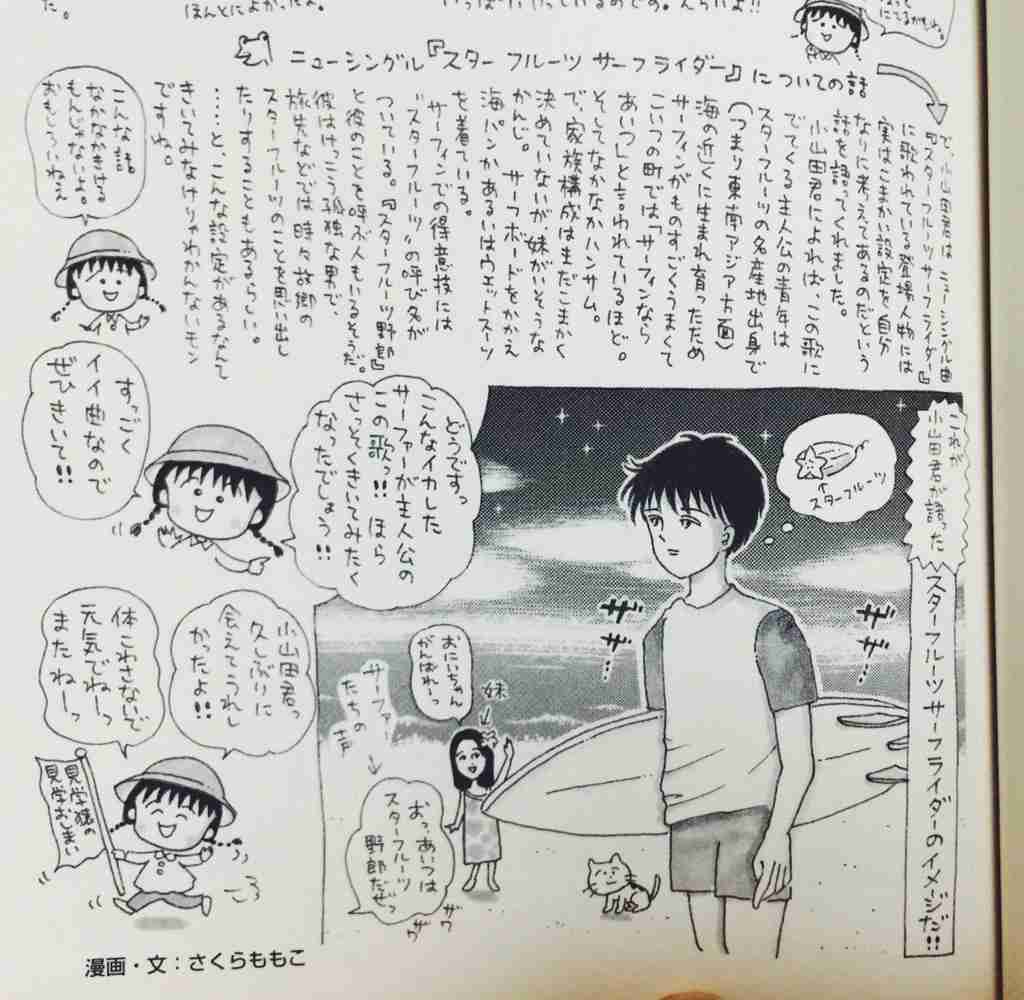 た。
ほんとによかったよ。
ニューシングル『スターフルーツ サーフライダー』についての話
で、小山田君は ニューシングル曲
『スターフルーツサーフライダー』
に歌われている登場人物には
実はこまかい設定を自分
なりに考えてあるのだという
話を語ってくれました。
小山田君によれば、この歌に
でてくる主人公の青年は
スターフルーツの名産地出身で
(つまり東南アジア方面)
海の近くに生まれ育ったため
サーフィンがものすごくうまくて
こいつの町では「サーフィンなら
あいつ」と言われているほど。
そしてなかなかハンサム。
で、家族構成はまだこまかく
決めていないが妹がいそうな
かんじ。サーフボードをかかえ
海パンかあるいはウェットスーツ
を着ている。
サーフィンでの得意技には
"スターフルーツ"の呼び名が
ついている。『スターフルーツ野郎』
と彼のことを呼ぶ人もいるそうだ。
彼はけっこう孤独な男で、
旅先などでは時々故郷の
スターフルーツのことを思い出し
たりすることもあるらしい。
……と、こんな設定があるなんて
きいてみなけりゃわかんないモン
ですね。
こんな話
なかなかきける
もんじゃないよ。
おもしろいねえ
すっごく
イイ曲なので
ぜひきいて!!
どうですっ
こんなイカした
サーファーが主人公の
この歌っ!! ほら
さっそくきいてみたく
なったでしょう!!
これが
小山田君が語った
スターフルーツサーフライダーのイメージだ!!
スターフルーツ
ザザ…
ザザ…
おにいちゃん
がんばれーっ
妹
サーファー
たちの声
おっあいつは
スターフルーツ
野郎だぜっ
ザワ
ザワ
小山田君っ
久しぶりに
会えてうれし
かったよ!!
体こわさないで
元気でねーっ
またねーっ
見学猿の
見学おしまい
漫画・文:さくらももこ